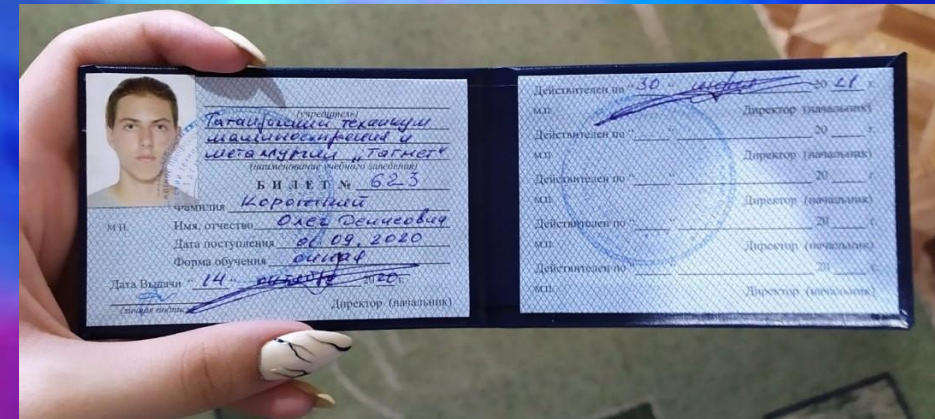 (учредитель)
Таганрогский техникум
машиностроения и
металлургии „Тагмет“
(наименование учебного заведения)
БИЛЕТ № 623
Фамилия Короткий
Имя, отчество Олег Денисович
Дата поступления 01.09.2020
Форма обучения очная
Дата Выдачи "14" октября 2020 г.
М.П.
(личная подпись)
Директор (начальник)
Действителен по "30" июня 20 21
М.П. Директор (начальник)
Действителен по "__" 20 __ г.
М.П. Директор (начальник)
Действителен по "__" 20 __ г.
М.П. Директор (начальник)
Действителен по "__" 20 __ г.
М.П. Директор (начальник)
Действителен по "__" 20 __ г.
М.П. Директор (начальник)